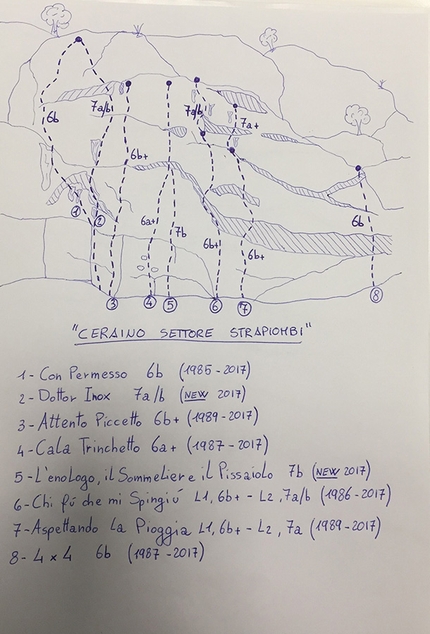 6b
7a/b
7a/b
7a+
6b+
6b
6a+
7b
6b+
6b+
1
2
3
4
5
6
7
8
"CERAINO SETTORE STRAPIOMBI"
1- Con Permesso 6b (1985-2017)
2- Dottor Inox 7a/b (NEW 2017)
3- Attento Piccetto 6b+ (1989-2017)
4- Cala Trinchetto 6a+ (1987-2017)
5- L'enologo, il Sommelier e il Pissaiolo 7b (NEW 2017)
6- Chi fú che mi Spingiú L1, 6b+ - L2, 7a/b (1986-2017)
7- Aspettando La Pioggia L1, 6b+ - L2, 7a (1989-2017)
8- 4 x 4 6b (1987-2017)